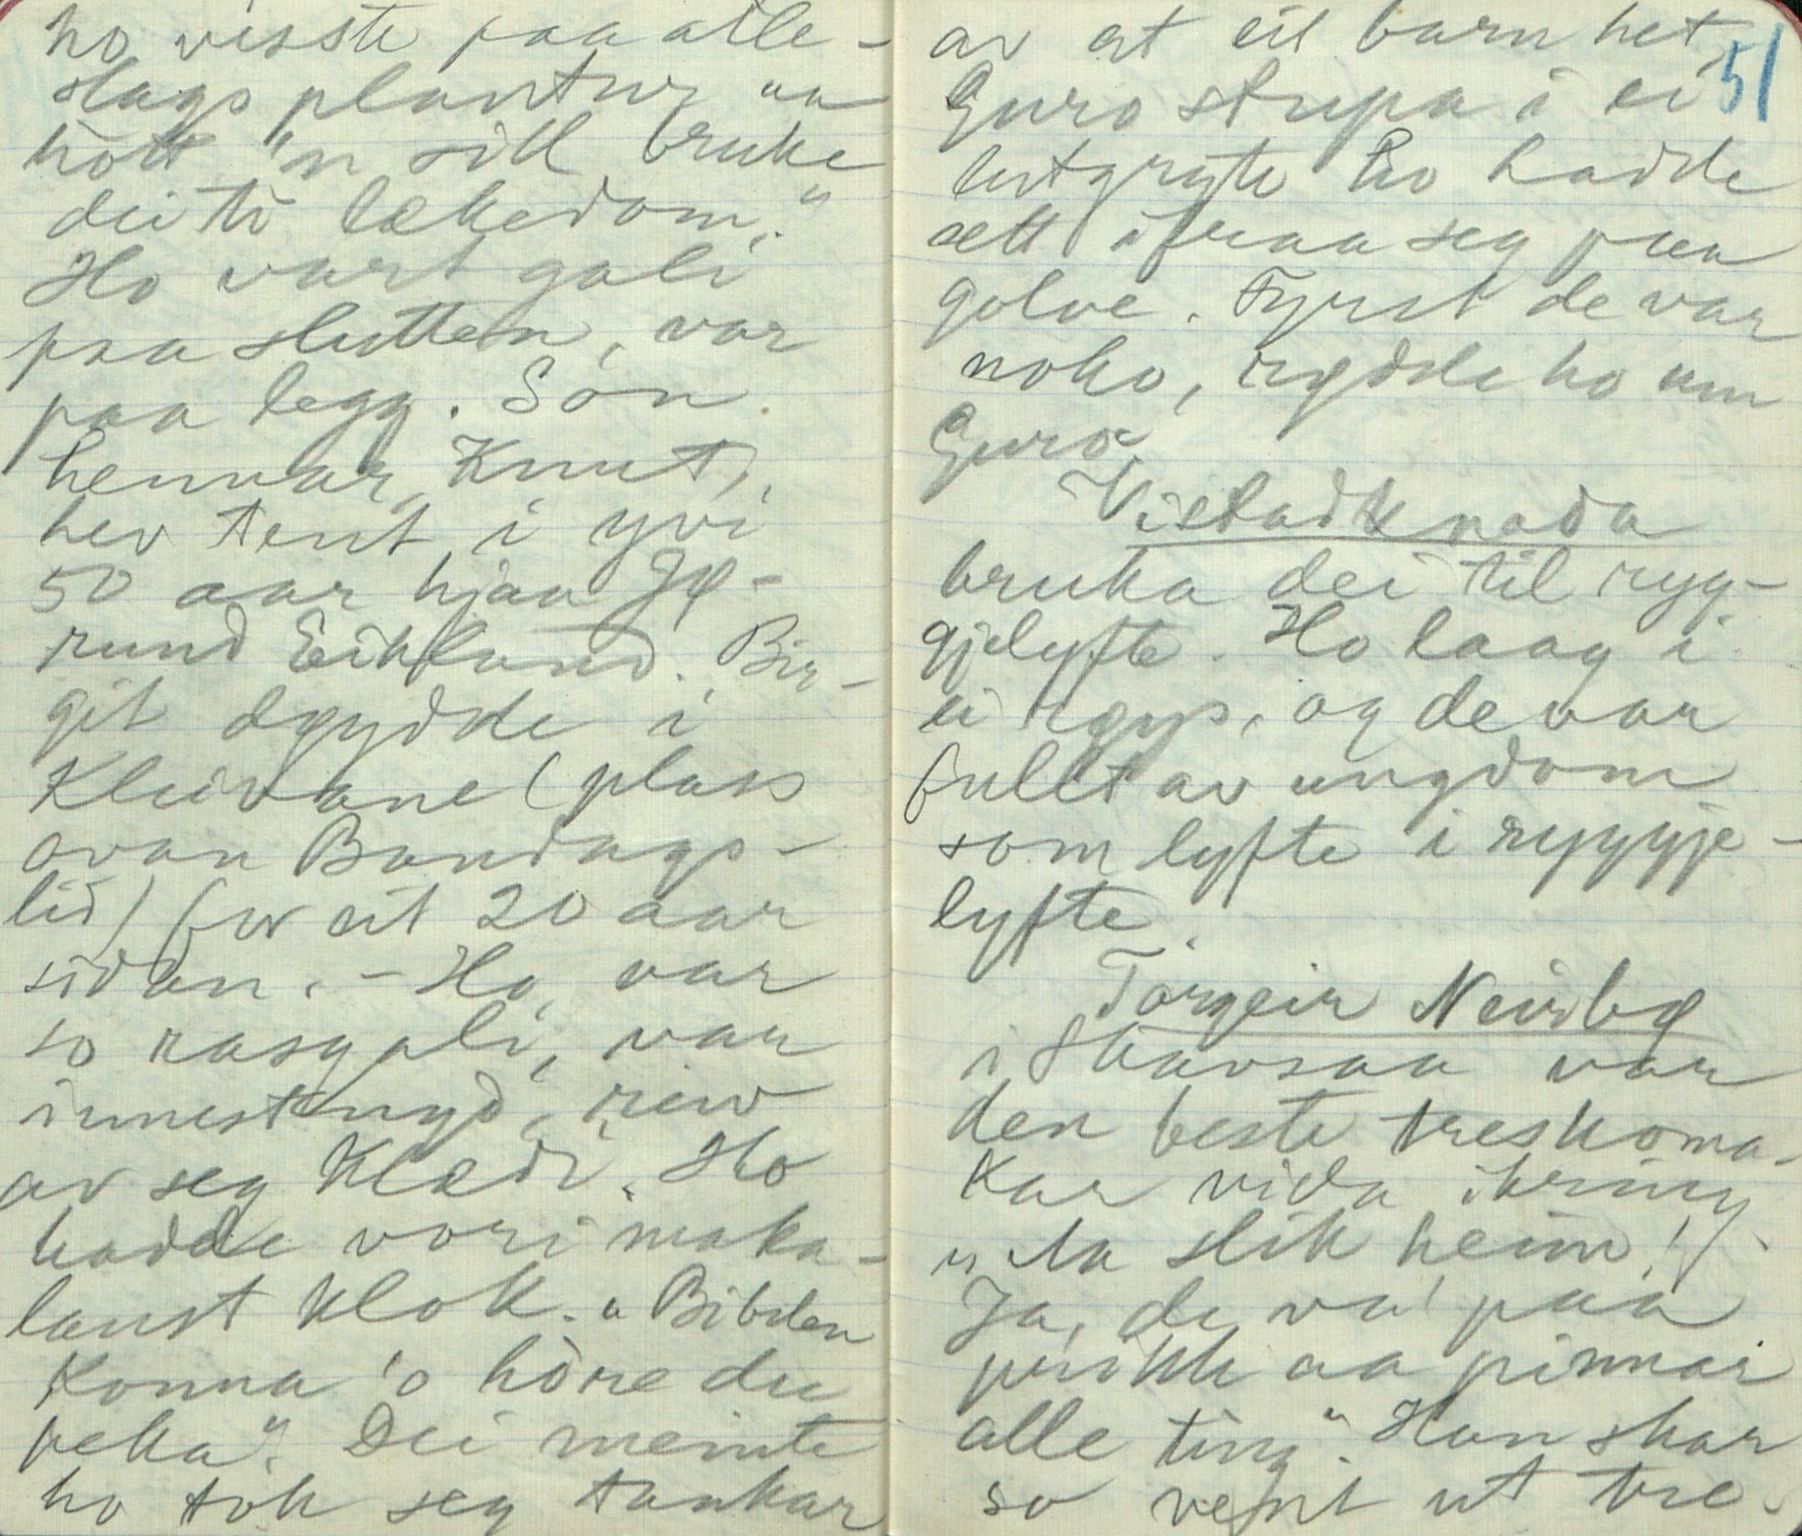 ho visste paa alle-
slags plantur aa
hott 'n sill bruke
dei ti lækedom."
Ho vart gali
paa slutten, var
paa legg. Son
hennar, Knut,
hev tent i yvi
50 aar hjaa Jø-
rund Eikland. Bir-
git døydde i
Kleivane (plass
ovan Bondags-
lid) for eit 20 aar
sidan. - Ho var
so rasgali, var
innestengd, reiv
av seg klædi. Ho
hadde vori maka-
laust klok. "Bibelen
konna 'o høre du
peka". Dei meinte
ho tok seg tankar
51
av at eit barn het
Guro stupa i ei
lutgryte ho hadde
sett ifraa seg paa
golve. Fyrst de var
noko, rødde ho um
Guro.
Vistadknada
bruka dei til ryg-
gjelyfte. Ho laag i
ei røys, og de var
fullt av ungdom
som lyfte i ryggje-
lyfte.
Torgeir Neirbø
i Skavsaa var
den beste treskoma-
kar vida ikring
"Aa slik heim!
Ja, de va' paa
prikk aa pinnar
alle ting". Han skar
so vent ut tre-